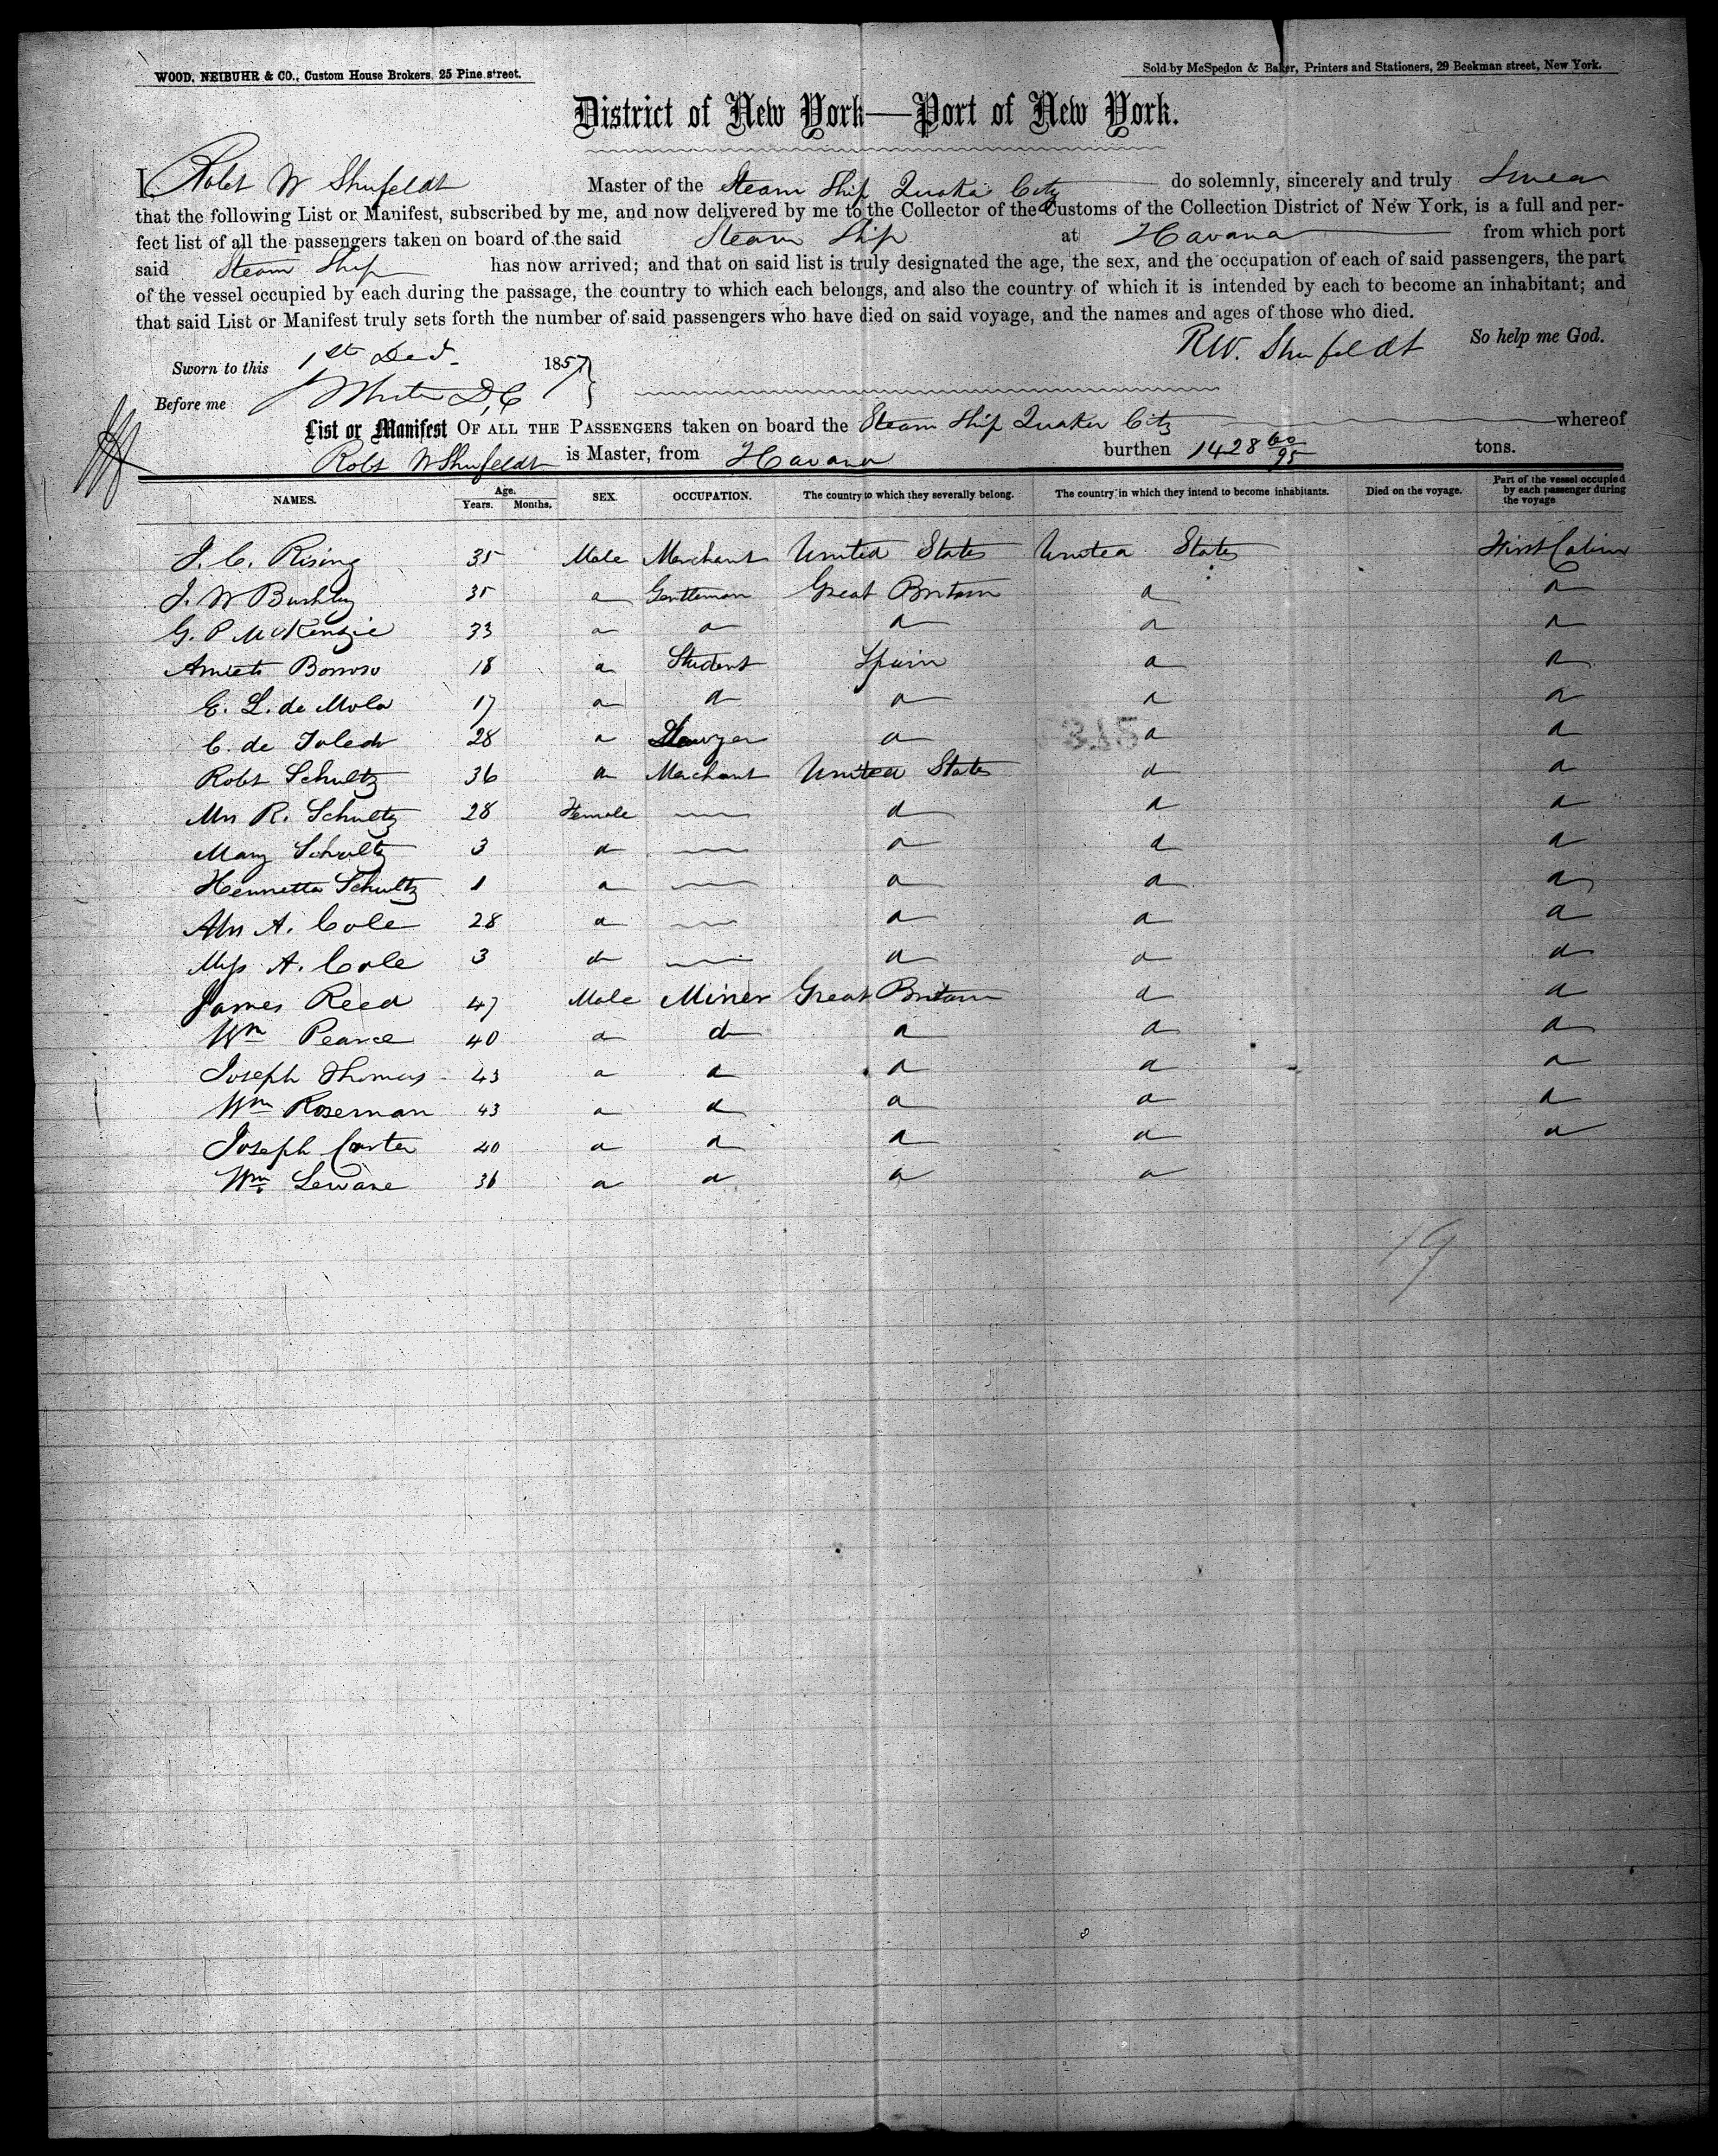 WOOD, NEIBUHR & CO., Custom House Brokers, 25 Pine street.
Sold by McSpedon & Baker, Printers and Stationers, 29 Beekman street, New York.
District of New York—Port of New York.
I, Robt W Shufeldt Master of the Steam Ship Quaker City do solemnly, sincerely and truly Swear
that the following List or Manifest, subscribed by me, and now delivered by me to the Collector of the Customs of the Collection District of New York, is a full and per-
fect list of all the passengers taken on board of the said Steam Ship at Havana from which port
said Steam Ship has now arrived; and that on said list is truly designated the age, the sex, and the occupation of each of said passengers, the part
of the vessel occupied by each during the passage, the country to which each belongs, and also the country of which it is intended by each to become an inhabitant; and
that said List or Manifest truly sets forth the number of said passengers who have died on said voyage, and the names and ages of those who died.
So help me God.
R.W. Shufeldt
Sworn to this 1st Decr 1857
Before me D,C
List or Manifest OF ALL THE PASSENGERS taken on board the Steam Ship Quaker City whereof
Robt W Shufeldt is Master, from Havana burthen 1428 60/95 tons.
NAMES. Age. Years. Months. SEX. OCCUPATION. The country to which they severally belong. The country in which they intend to become inhabitants. Died on the voyage. Part of the vessel occupied by each passenger during the voyage
J. C. Rising 35 Male Merchant United States United States First Cabin
J. W 35 d Gentleman Great Britain d d
G. P McKenzie 33 d d d d d
18 d Student Spain d d
E. L. de Mola 17 d d d d d
C. de Toledo 28 d Lawyer d d d
315
Robt Schultz 36 d Merchant United States d d
Mrs R. Schultz 28 Female — d d d
Mary Schultz 3 d — d d d
Henrietta Schultz 1 d — d d d
Mrs A. Cole 28 d — d d d
Miss A. Cole 3 d — d d d
James Reed 47 Male Miner Great Britain d d
Wm Pearce 40 d d d d d
Joseph Thomas 43 d d d d d
Wm Roseman 43 d d d d d
Joseph Carter 40 d d d d d
Wm Lewane 36 d d d d
19